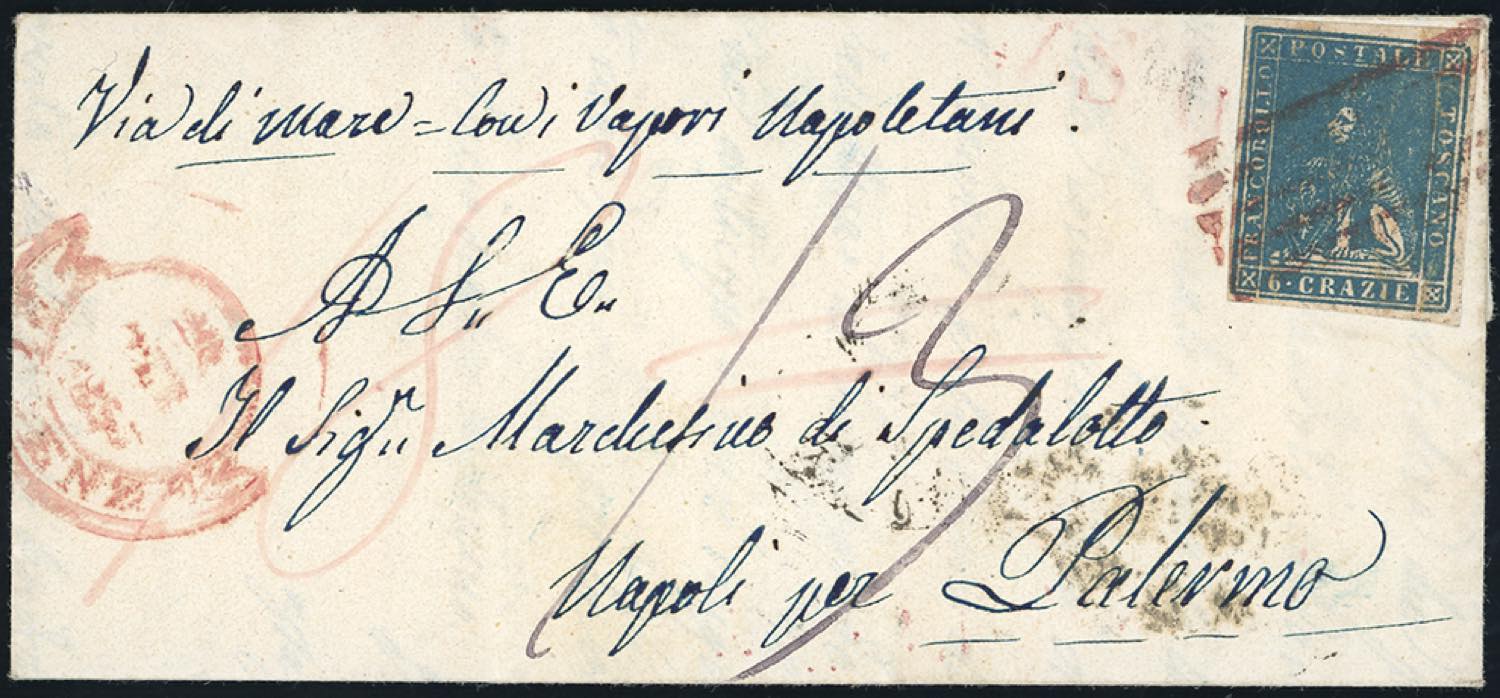 Via di mare = Con i Vapori Napoletani.
FRANCOBOLLO POSTALE TOSCANO
6·CRAZIE
A S.,, E.,,
Il Sigr.,, Marchesino di Spedalotto
Napoli per Palermo
13
18